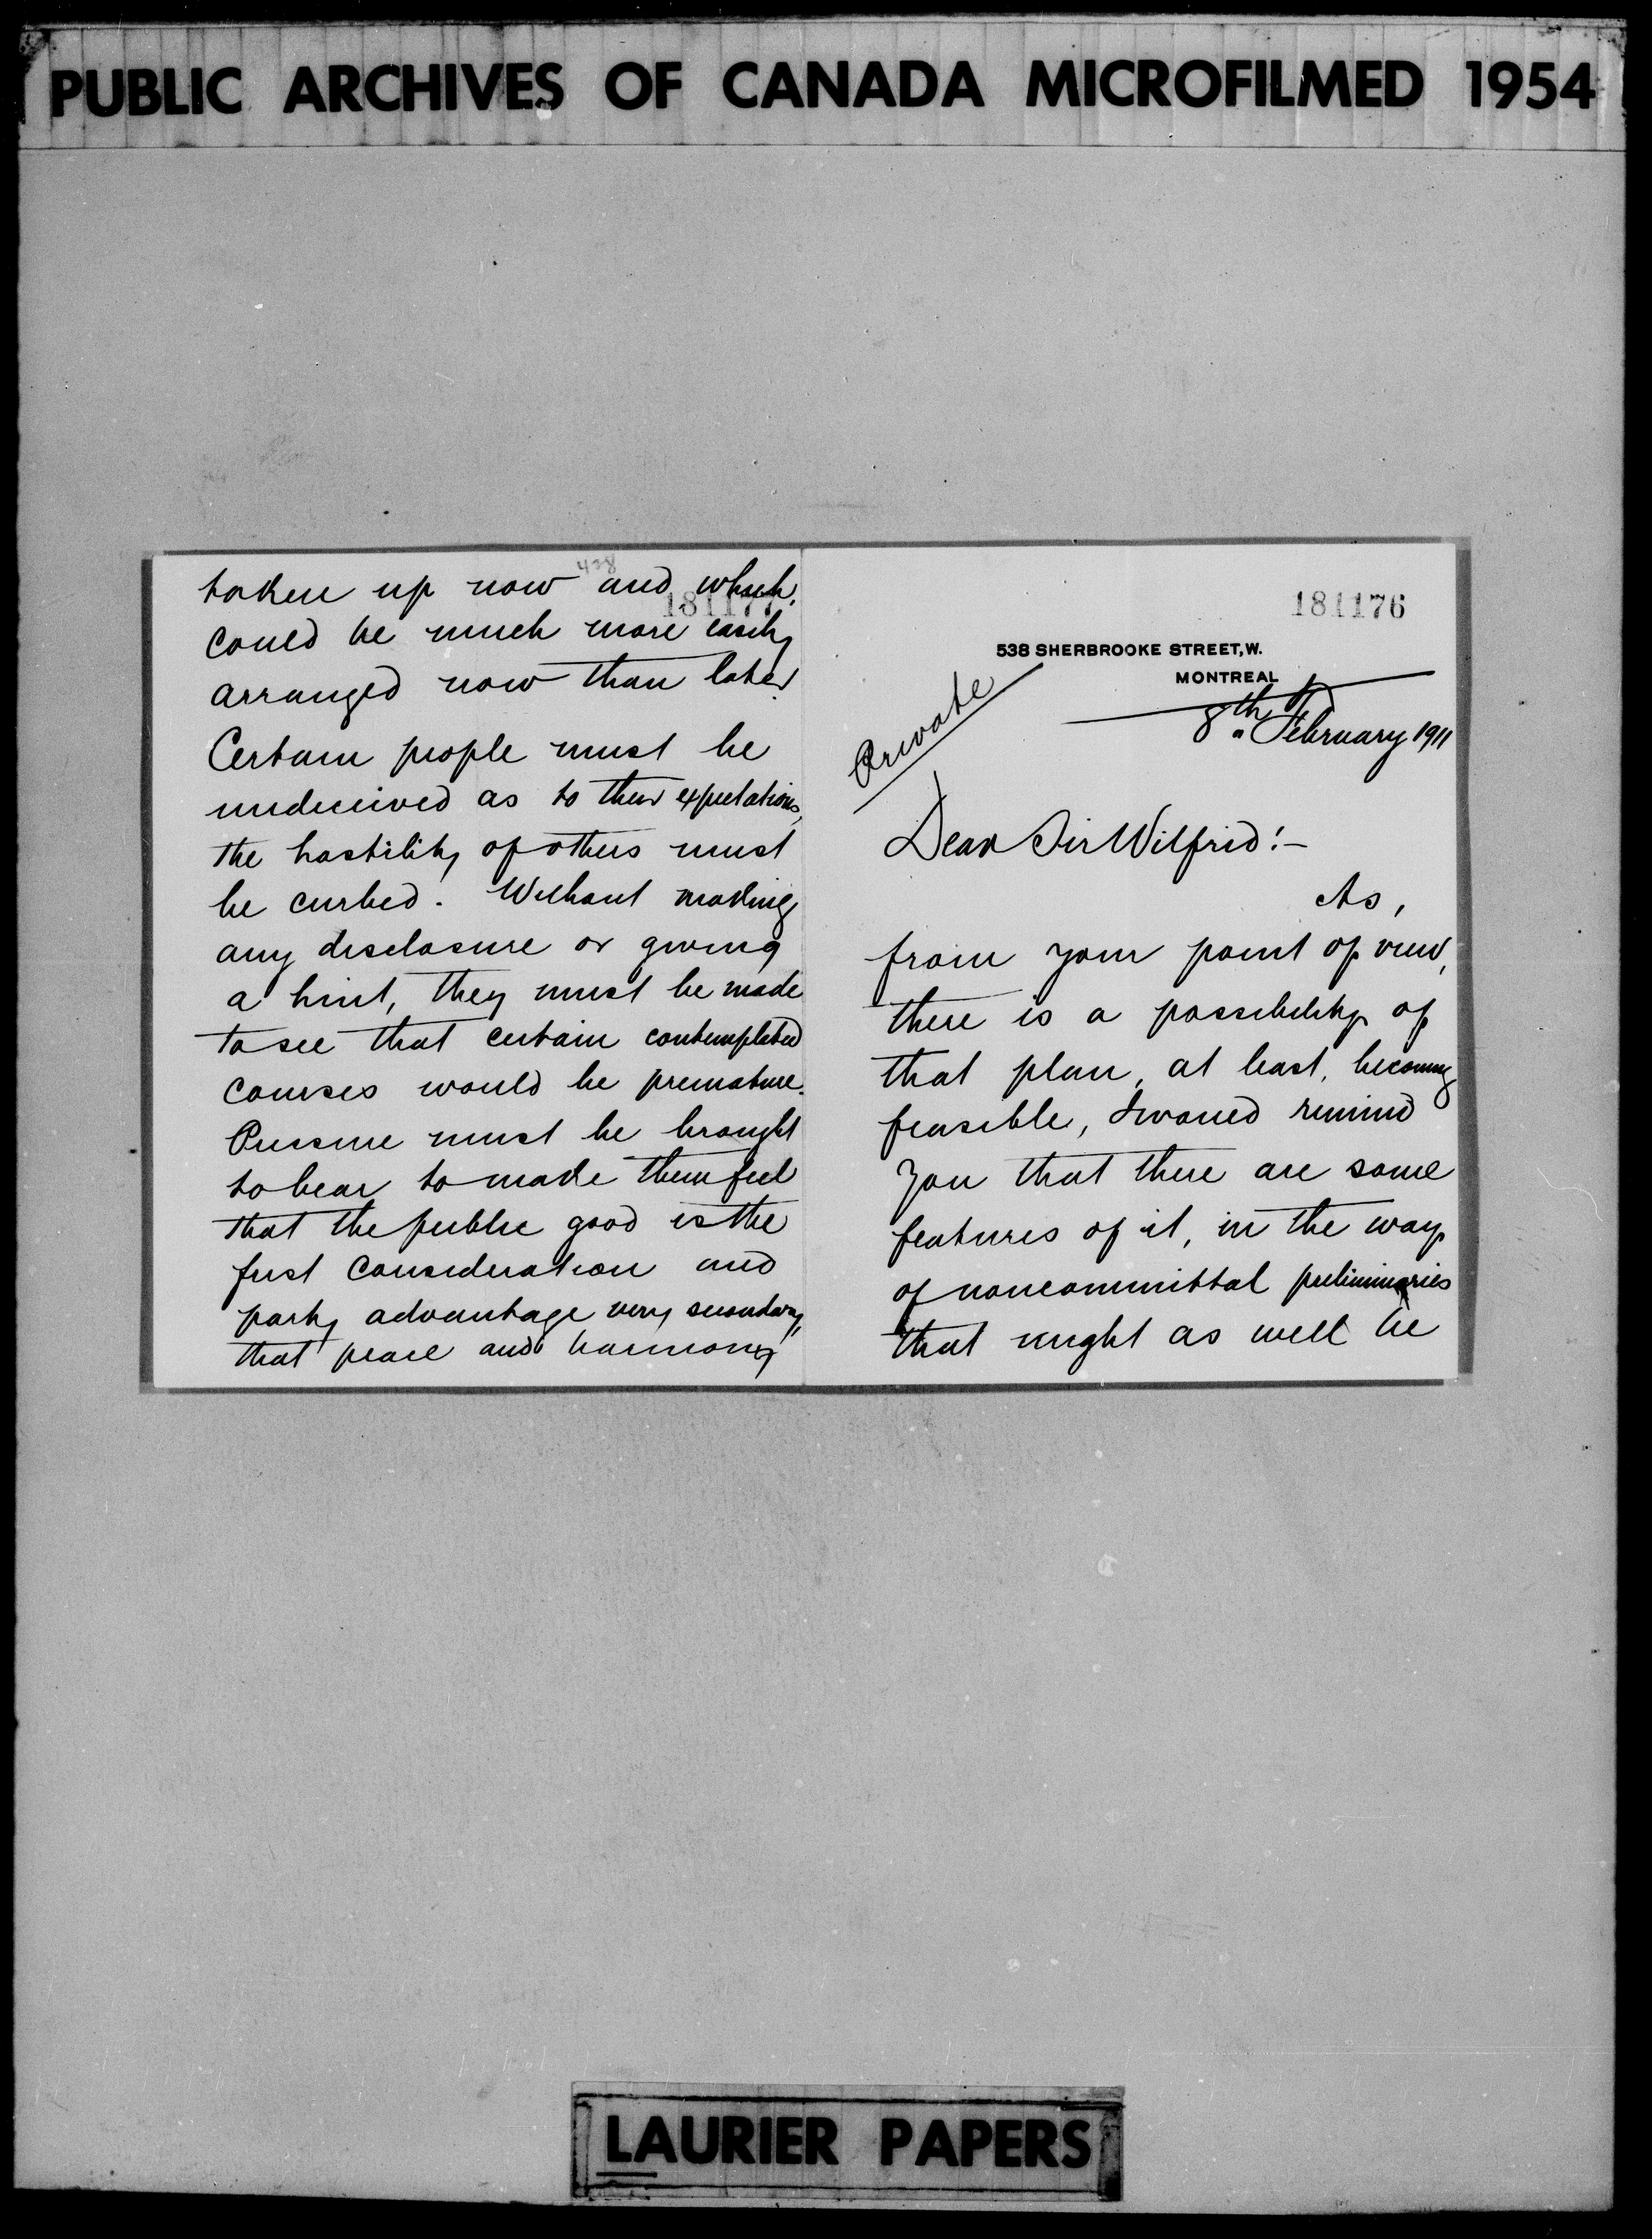 PUBLIC ARCHIVES OF CANADA MICROFILMED 1954
181176
538 SHERBROOKE STREET, W.
MONTREAL
Private
8th February 1911
Dear Sir Wilfrid:-
As,
from your point of view,
there is a possibility of
that plan, at least, becoming
feasible, I would remind
you that there are some
features of it, in the way
of noncommittal preliminaries
that might as well be
438
18117
taken up now and which
could be much more easily
arranged now than later.
Certain people must be
undeceived as to their expectations,
the hostility of others must
be curbed. Without making
any disclosure or giving
a hint, they must be made
to see that certain contemplated
courses would be premature.
Pressure must be brought
to bear to make them feel
that the public good is the
first consideration and
party advantage very secondary,
that peace and harmony
LAURIER PAPERS